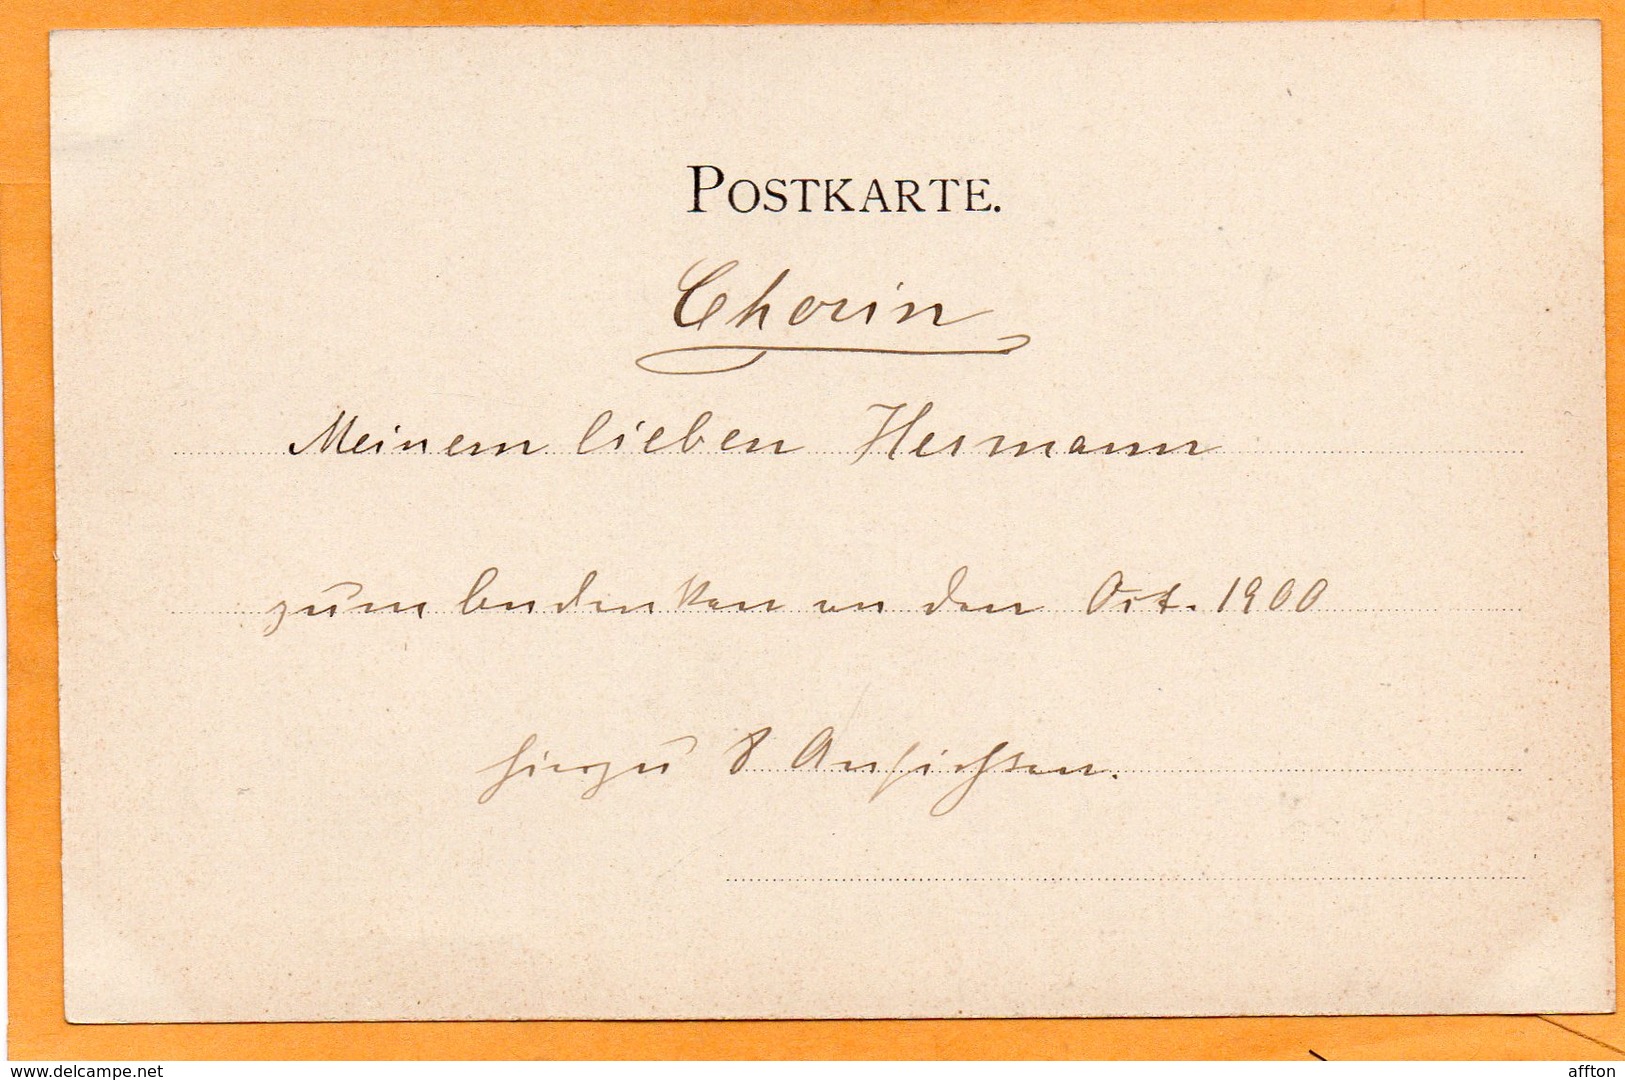 POSTKARTE.
Chorin
Meinem lieben Hermann
zum Andenken an den Oct. 1900
hierzu 8 Ansichten.
www.delcampe.net
affton